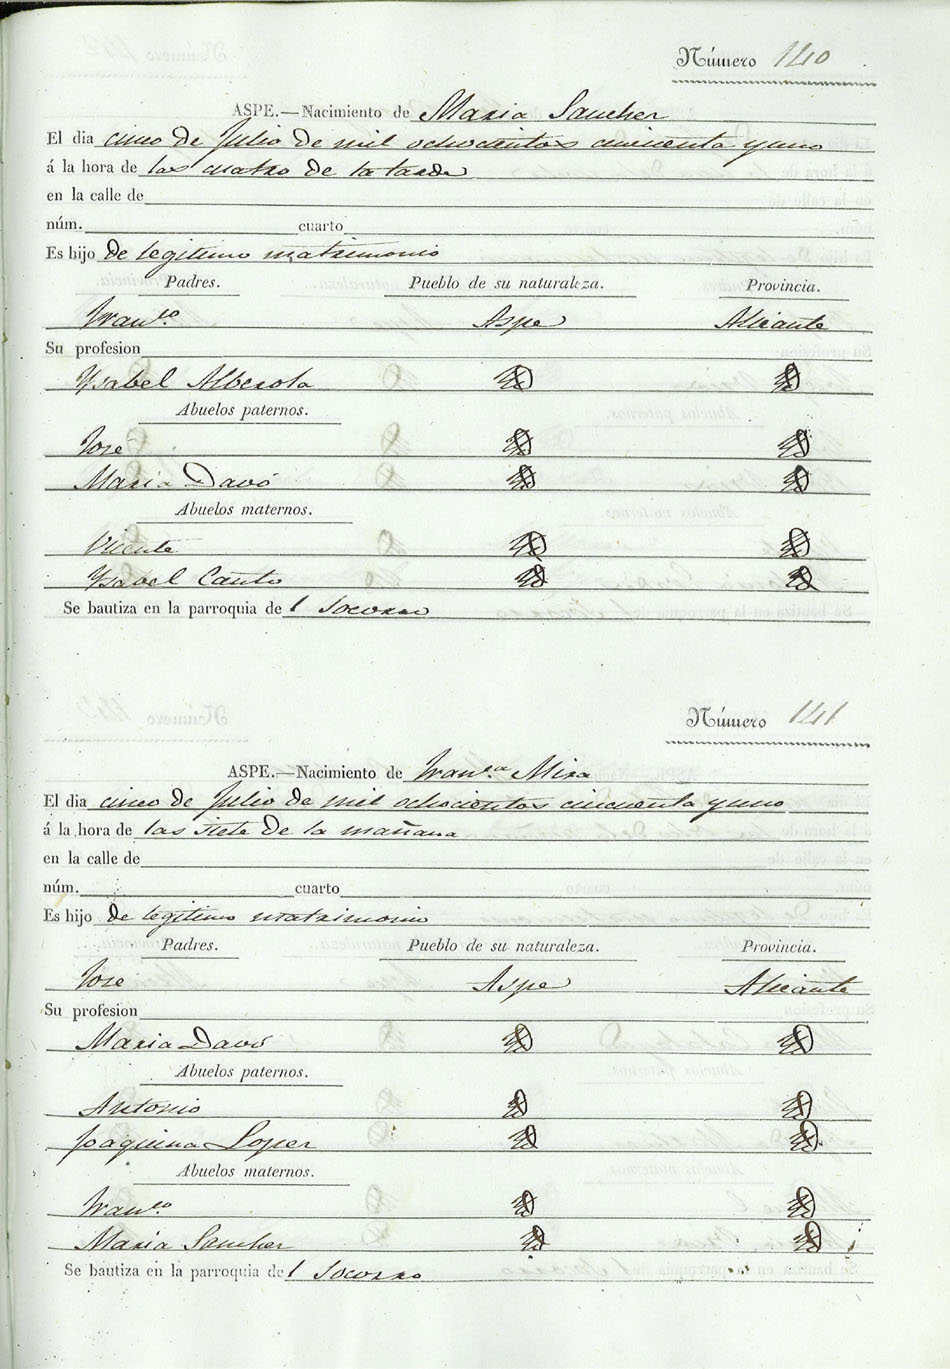 Número 140
ASPE.—Nacimiento de Maria Sanchez
El dia cinco de Julio de mil ochocientos cincuenta y uno
á la hora de las cuatro de la tarde
en la calle de
núm. cuarto
Es hijo de legitimo matrimonio
Padres. Pueblo de su naturaleza. Provincia.
Franco. Aspe Alicante
Su profesion
Ysabel Alberola
Abuelos paternos.
Jose
Maria Davó
Abuelos maternos.
Vicente
Ysabel Canto
Se bautiza en la parroquia de l Socorro
Número 141
ASPE.—Nacimiento de Franca. Mira
El dia cinco de Julio de mil ochocientos cincuenta y uno
á la hora de las siete de la mañana
en la calle de
núm. cuarto
Es hijo de legitimo matrimonio
Padres. Pueblo de su naturaleza. Provincia.
Jose Aspe Alicante
Su profesion
Maria Davó
Abuelos paternos.
Antonio
Joaquina Lopez
Abuelos maternos.
Franco.
Maria Sanchez
Se bautiza en la parroquia de l Socorro